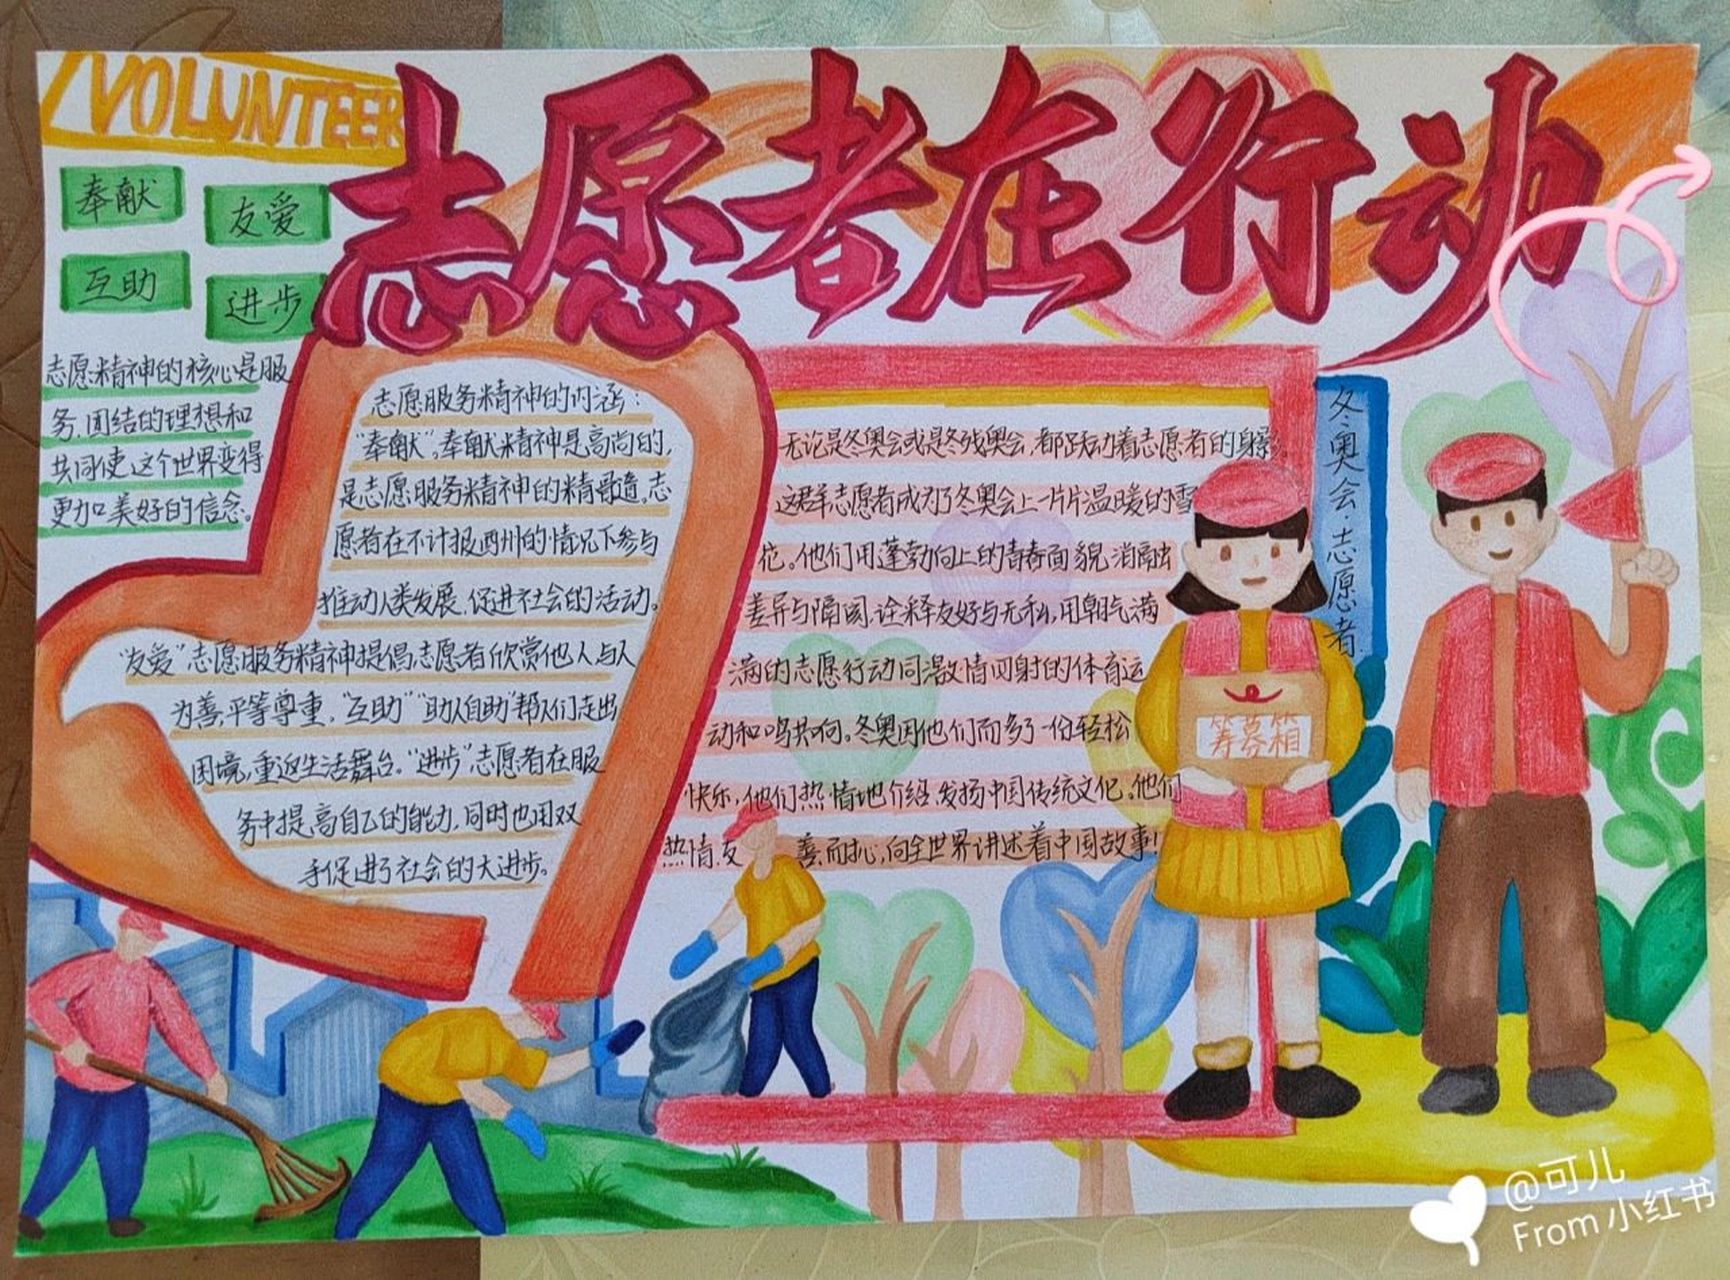 VOLUNTEER
志愿者在行动
奉献
友爱
互助
进步
志愿精神的核心是服
务、团结的理想和
共同使这个世界变得
更加美好的信念。
志愿服务精神的内涵：
“奉献”。奉献精神是高尚的，
是志愿服务精神的精髓。志
愿者在不计报酬的情况下参与
推动人类发展、促进社会的活动。
“友爱”志愿服务精神提倡志愿者欣赏他人与人
为善、平等尊重，“互助”“助人自助”帮人们走出
困境，重返生活舞台。“进步”志愿者在服
务中提高自己的能力，同时也用双
手促进了社会的大进步。
无论是冬奥会或是冬残奥会，都跃动着志愿者的身影。
这群志愿者成为了冬奥会上一片片温暖的雪
花。他们用蓬勃向上的青春面貌，消融
差异与隔阂，诠释友好与无私，用朝气满
满的志愿行动同激情四射的体育运
动和鸣共向。冬奥因他们而多了一份轻松
快乐，他们热情地介绍、发扬中国传统文化，他们
热情友善而扎心，向全世界讲述着中国故事！
冬奥会·志愿者
筹募箱
@可儿
From 小红书